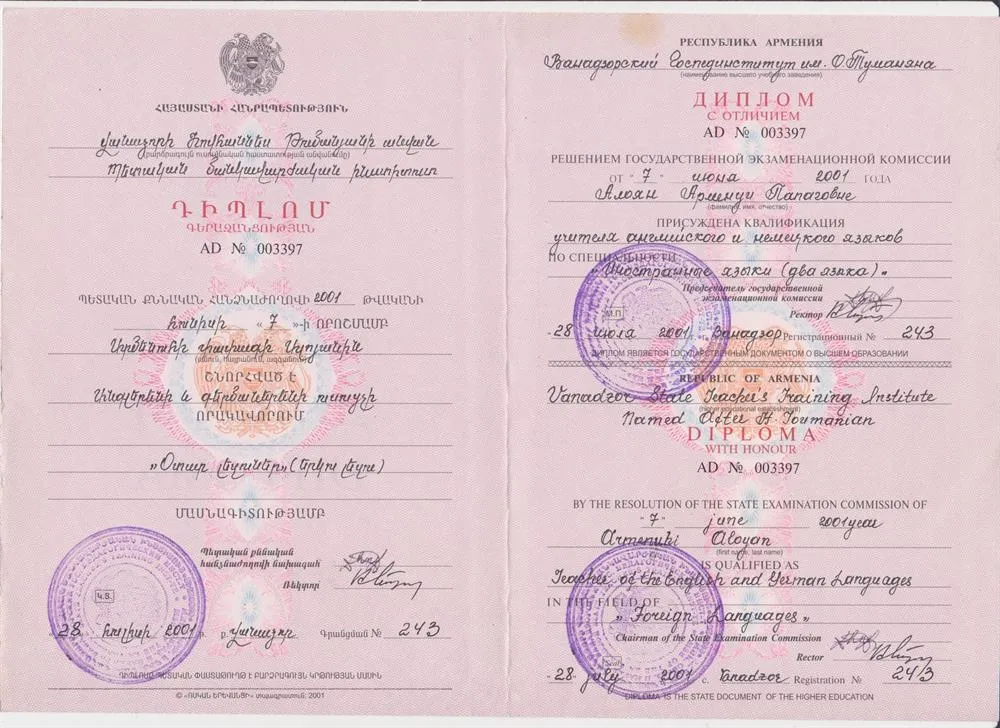 ՀԱՅԱՍՏԱՆԻ ՀԱՆՐԱՊԵՏՈՒԹՅՈՒՆ
Վանաձորի Հովհաննես Թումանյանի անվան
(բարձրագույն ուսումնական հաստատության անվանումը)
Պետական մանկավարժական ինստիտուտ
ԴԻՊԼՈՄ
ԳԵՐԱԶԱՆՑՈՒԹՅԱՆ
AD № 003397
ՊԵՏԱԿԱՆ ՔՆՆԱԿԱՆ ՀԱՆՁՆԱԺՈՂՈՎԻ 2001 ԹՎԱԿԱՆԻ
հունիսի « 7 »-ի ՈՐՈՇՄԱՄԲ
Արմենուհի Ալոյանին
(անուն, հայրանուն, ազգանուն)
ՇՆՈՐՀՎԱԾ Է
Անգլերենի և գերմաներենի ուսուցչի
ՈՐԱԿԱՎՈՐՈՒՄ
«Օտար լեզուներ» (երկու լեզու)
ՄԱՍՆԱԳԻՏՈՒԹՅԱՄԲ
Պետական քննական
հանձնաժողովի նախագահ
Ռեկտոր
Կ.Տ.
28 հուլիսի 2001 թ. ք. Վանաձոր Գրանցման № 243
ԴԻՊԼՈՄԸ ՊԵՏԱԿԱՆ ՓԱՍՏԱԹՈՒՂԹ Է ԲԱՐՁՐԱԳՈՒՅՆ ԿՐԹՈՒԹՅԱՆ ՄԱՍԻՆ
© «ՈՍԿԱՆ ԵՐԵՎԱՆՑԻ» տպագրատուն, 2001
РЕСПУБЛИКА АРМЕНИЯ
Ванадзорский Госпединститут им. О.Туманяна
(наименование высшего учебного заведения)
ДИПЛОМ
С ОТЛИЧИЕМ
AD № 003397
РЕШЕНИЕМ ГОСУДАРСТВЕННОЙ ЭКЗАМЕНАЦИОННОЙ КОМИССИИ
ОТ " 7 " июня 2001 ГОДА
Алоян Арменуи
(фамилия, имя, отчество)
ПРИСУЖДЕНА КВАЛИФИКАЦИЯ
учителя английского и немецкого языков
ПО СПЕЦИАЛЬНОСТИ
"Иностранные языки (два языка)"
Председатель государственной
экзаменационной комиссии
Ректор
М.П.
28 июля 2001 г. Ванадзор Регистрационный № 243
ДИПЛОМ ЯВЛЯЕТСЯ ГОСУДАРСТВЕННЫМ ДОКУМЕНТОМ О ВЫСШЕМ ОБРАЗОВАНИИ
REPUBLIC OF ARMENIA
Vanadzor State Teacher's Training Institute
(higher educational establishment)
Named After H. Toumanian
DIPLOMA
WITH HONOUR
AD № 003397
BY THE RESOLUTION OF THE STATE EXAMINATION COMMISSION OF
" 7 " june 2001 year
Armenuhi Aloyan
(first name, last name)
IS QUALIFIED AS
Teacher of the English and German Languages
IN THE FIELD OF
"Foreign Languages"
Chairman of the State Examination Commission
Rector
Seal
28 july 2001 c. Vanadzor Registration № 243
DIPLOMA IS THE STATE DOCUMENT OF THE HIGHER EDUCATION